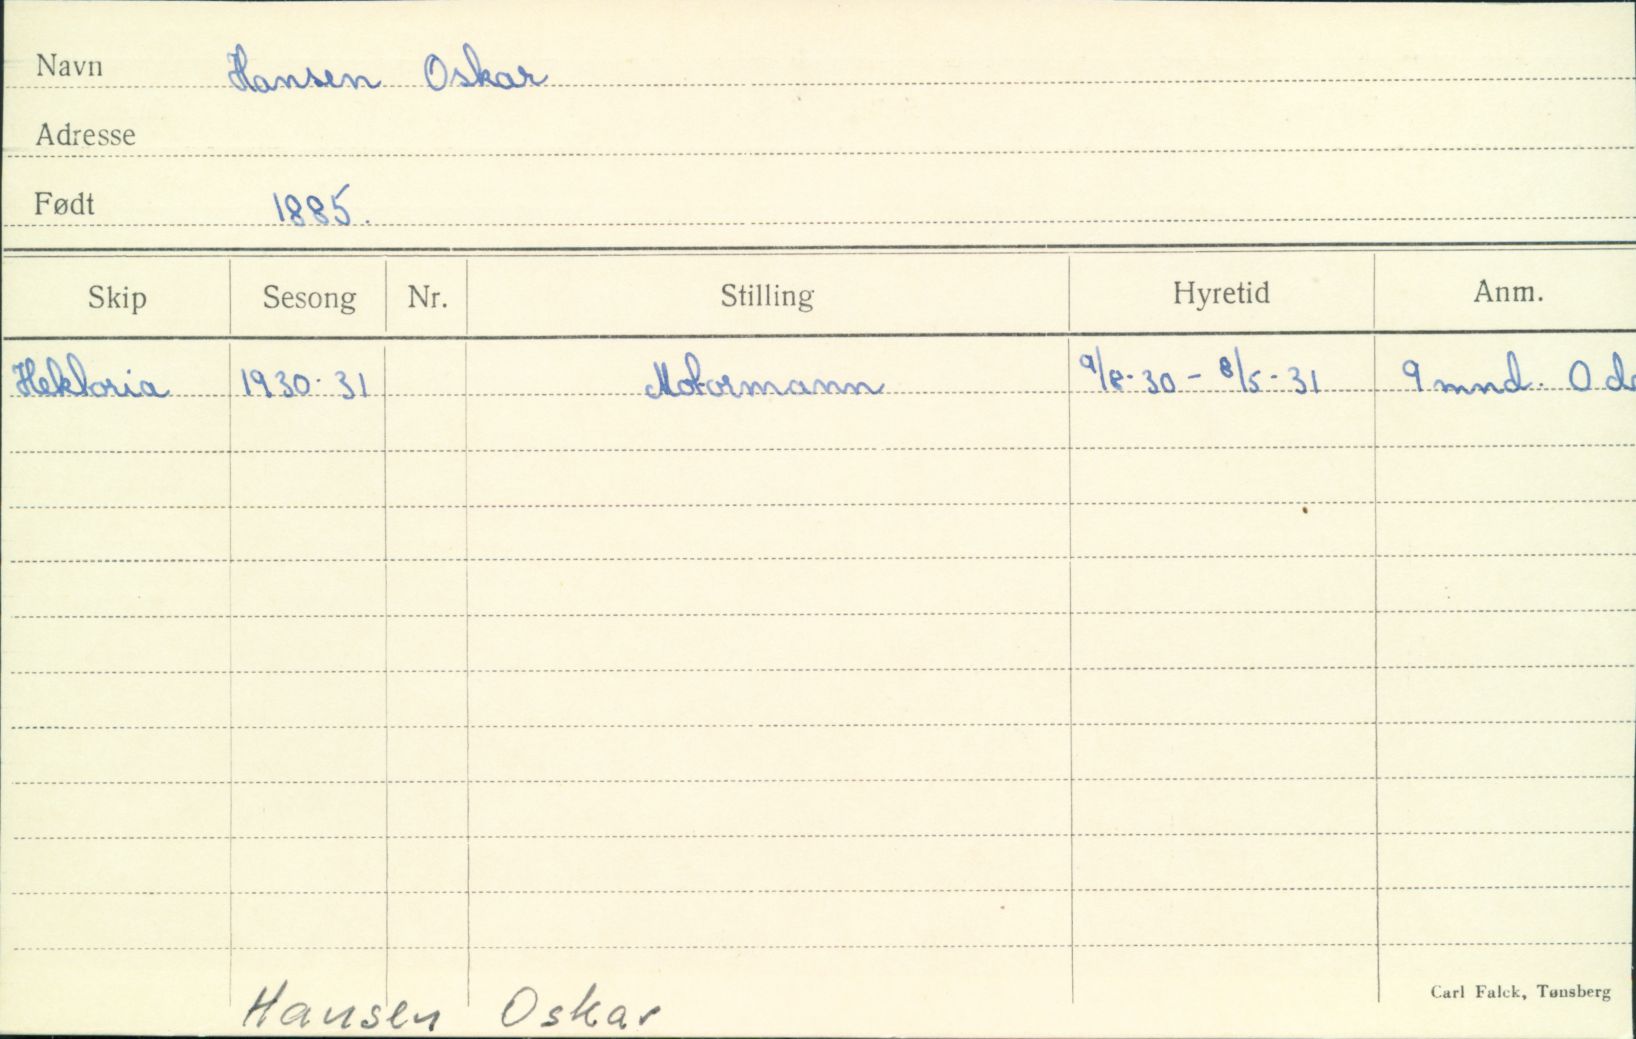 Navn Hansen Oskar
Adresse
Født 1885.
Skip Sesong Nr. Stilling Hyretid Anm.
Hektoria 1930-31 Motormann 9/8-30 - 8/5-31 9 mnd. 0 da
Carl Falck, Tønsberg
Hansen Oskar